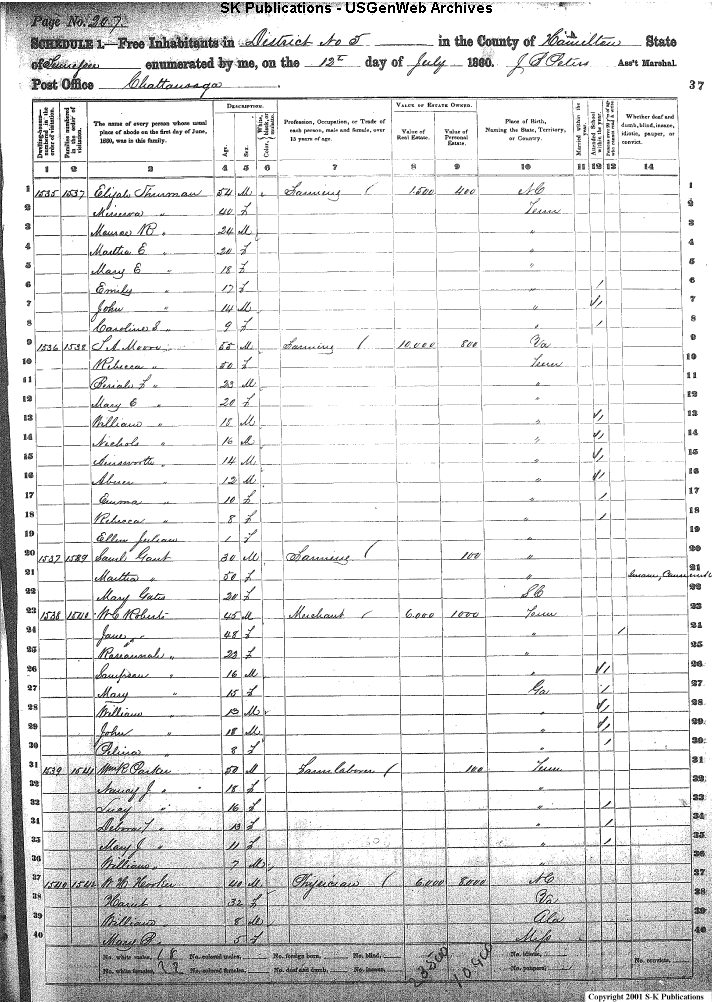 SK Publications - USGenWeb Archives
Page No. 207
SCHEDULE 1.—Free Inhabitants in District No 5 in the County of Hamilton State
of Tennessee enumerated by me, on the 12th day of July 1860. J Peters Ass't Marshal.
Post Office Chattanooga
37
DESCRIPTION. VALUE OF ESTATE OWNED.
Dwelling-houses—numbered in the order of visitation. Families numbered in the order of visitation. The name of every person whose usual place of abode on the first day of June, 1860, was in this family. Age. Sex. Color, Profession, Occupation, or Trade of each person, male and female, over 15 years of age. Value of Real Estate. Value of Personal Estate. Place of Birth, Naming the State, Territory, or Country. Married within the year. Attended School within the year. Whether deaf and dumb, blind, insane, idiotic, pauper, or convict.
1 2 3 4 5 6 7 8 9 10 11 12 13 14
1 1535 1537 Elijah Thurman 54 M Farming 1,500 400 NC 1
2 Minerva " 40 F Tenn 2
3 Monroe R " 24 M " 3
4 Martha E " 20 F " 4
5 Mary E " 18 F " 5
6 Emily " 17 F " 1 6
7 John " 14 M " 1 7
8 Caroline S " 9 F " 1 8
9 1536 1538 Moore 55 M Farming 10,000 800 Va 9
10 Rebecca " 50 F Tenn 10
11 " 23 M " 11
12 Mary E " 20 F " 12
13 William " 18 M " 1 13
14 Nichols " 16 M " 1 14
15 Ainsworth " 14 M " 1 15
16 Abner " 12 M " 1 16
17 Emma " 10 F " 1 17
18 Rebecca " 8 F " 1 18
19 Ellen Julian 1 F " 19
20 1537 1539 Saml Gant 30 M Farming 100 " 20
21 Martha " 50 F " Insane, 21
22 Mary Gates 20 F SC 22
23 1538 1540 W C Roberts 45 M Merchant 6,000 1000 Tenn
24 Jane " 48 F " 1 24
25 " 23 F " 25
26 Sampson " 16 M " 1 26
27 Mary " 15 F Ga 1 27
28 William " 13 M " 1 28
29 John " 18 M " 1 29
30 " 8 F " 1 30
31 1539 1541 Wm R Parker 50 M Farm laborer 100 Tenn 31
32 Nancy J " 18 F "
32 Lucy " 16 F " 1 33
34 " 13 F " 1 34
35 Mary J " 11 F " 1 35
36 William " 7 M " 36
37 1540 1542 W H Hooker 40 M Physician 6,000 8,000 NC 37
38 Hariet " 32 F Va 38
39 William 8 M Ala 39
40 Mary 5 F Miss 40
No. white males, 18 No. colored males, No. foreign born, No. blind, No. idiotic, No. convicts,
No. white females, 22 No. colored females, No. deaf and dumb, No. insane, No. paupers,
23500 10,400
Copyright 2001 S-K Publications